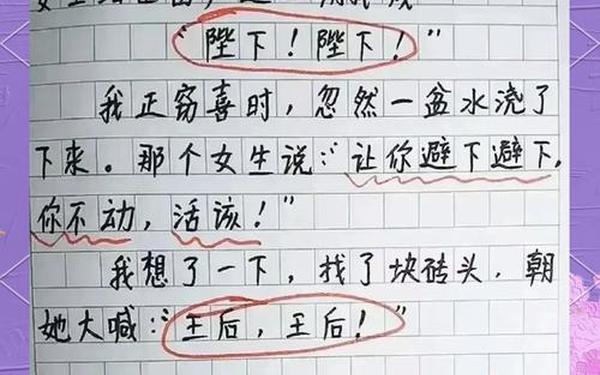 “陛下！陛下！”
我正窃喜时，忽然一盆水浇了
下来。那个女生说：“让你避下避下，
你不动，活该！”
我想了一下，找了块砖头，朝
她大喊：“王后，王后！”